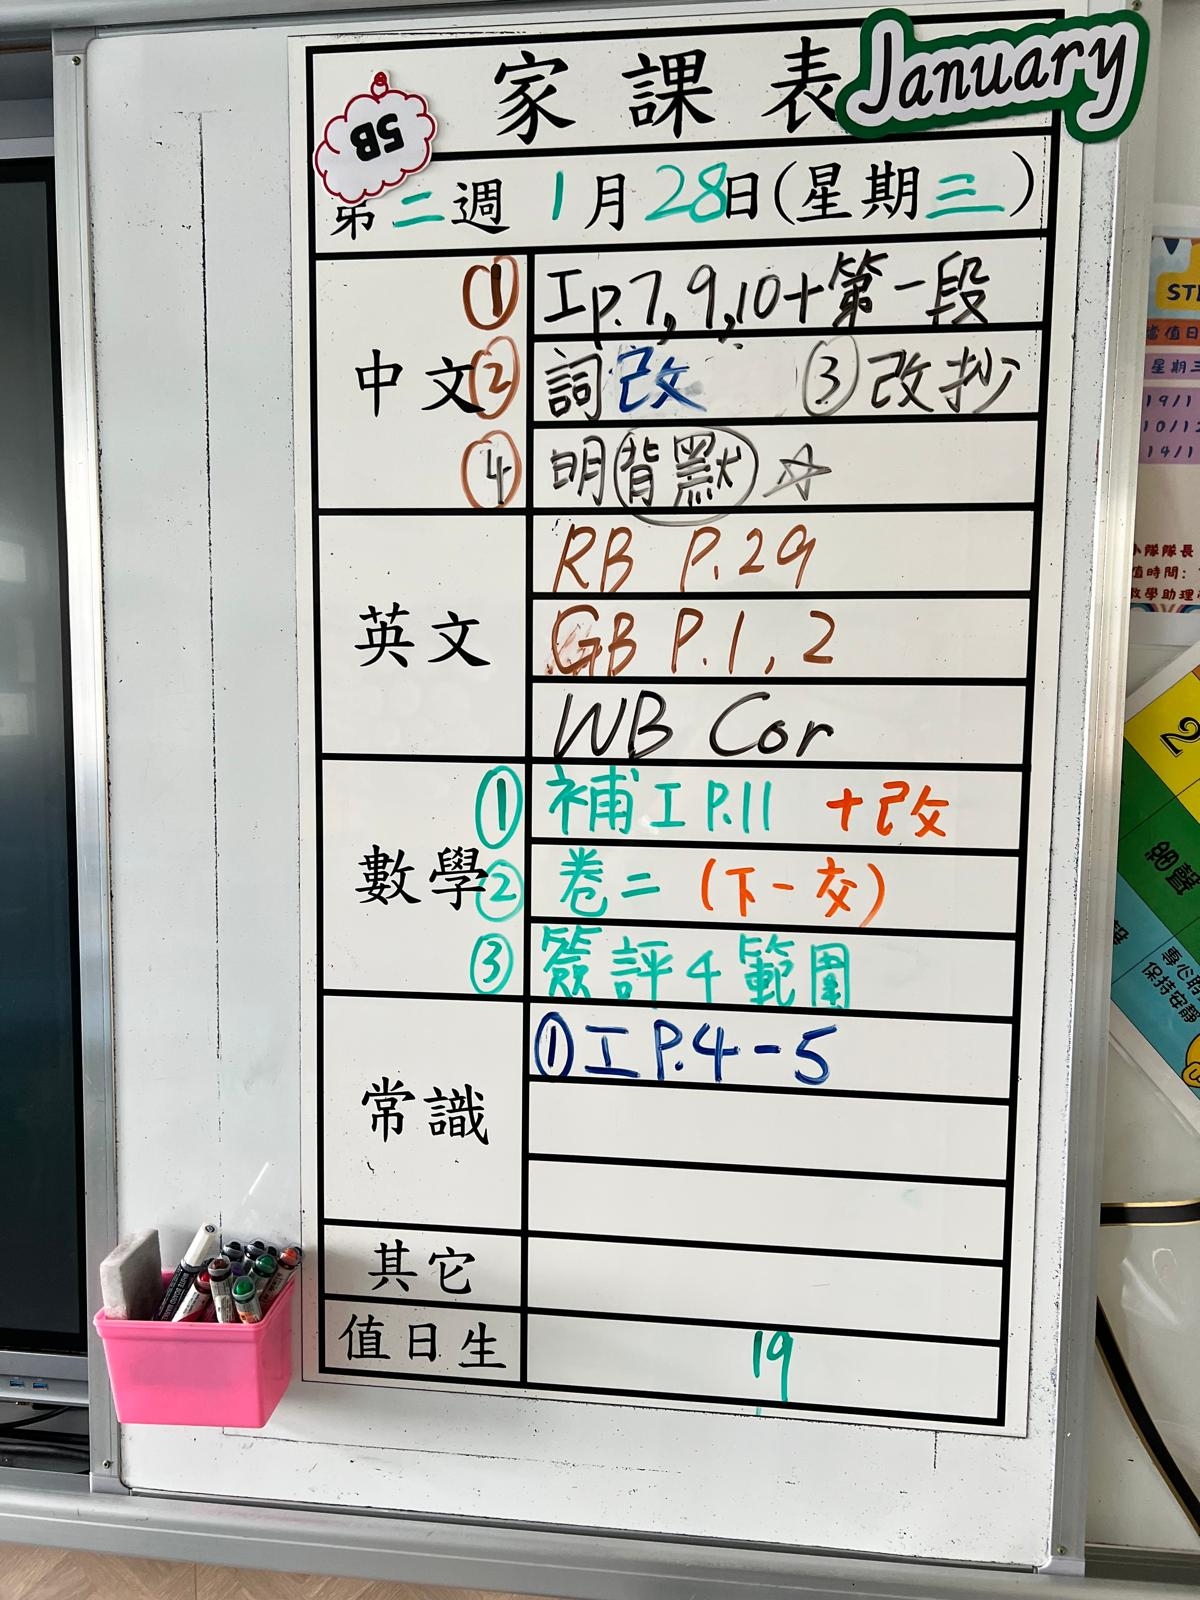 家課表 January
5B
第二週 1月28日(星期三)
中文
① 工p.7,9,10+第一段
② 詞改 ③改抄
④ 明背默☆
英文
RB P.29
GB P.1,2
WB Cor
數學
① 補工P.11 +改
② 卷二 (下一交)
③ 簽評4範圍
常識
①工P.4-5
其它
值日生
19
星期三
19/1
小隊隊長
值時間:
2
專心聆
保持安靜